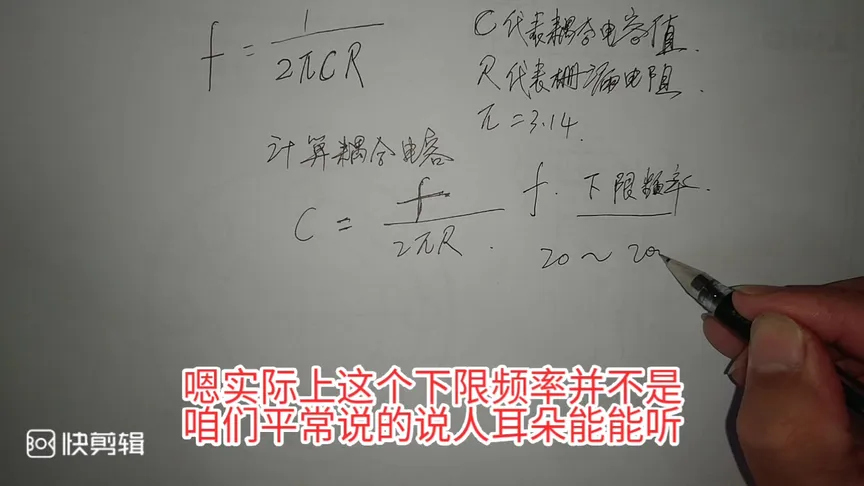 f = 1/2πCR
C代表耦合电容值.
R代表栅漏电阻.
π=3.14.
计算耦合电容
C = f/2πR.
f. 下限频率.
20～20
嗯实际上这个下限频率并不是
咱们平常说的说人耳朵能能听
快剪辑